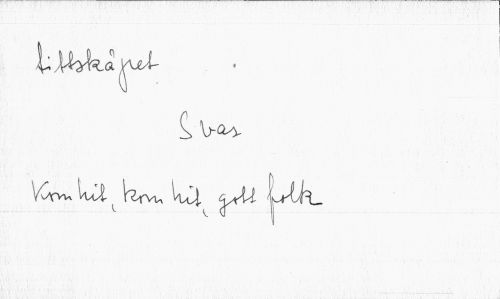 Tittskåpet
Svas
Kom hit, kom hit, gott folk